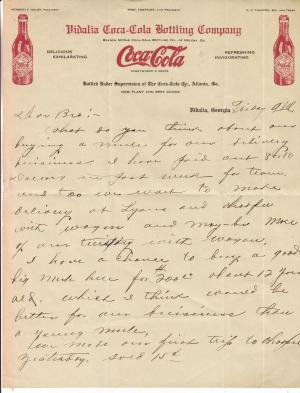 Vidalia Coca-Cola Bottling Company
DELICIOUS
EXHILARATING
REFRESHING
INVIGORATING
Coca-Cola
Bottled Under Supervision of The Coca-Cola Co., Atlanta, Ga.
Vidalia, Georgia
Dear Bro:-
What do you think about our
buying a mule for our delivery
business. I have paid out
for team
and too we want to make
delivery at Lyons and
with wagon and maybe more
of our with wagon,
I have a chance to buy a good
big mule here for about 12 years
old. which I think would be
better for our buisiness than
a young mule,
we made our first trip to
yesterday. sold 15